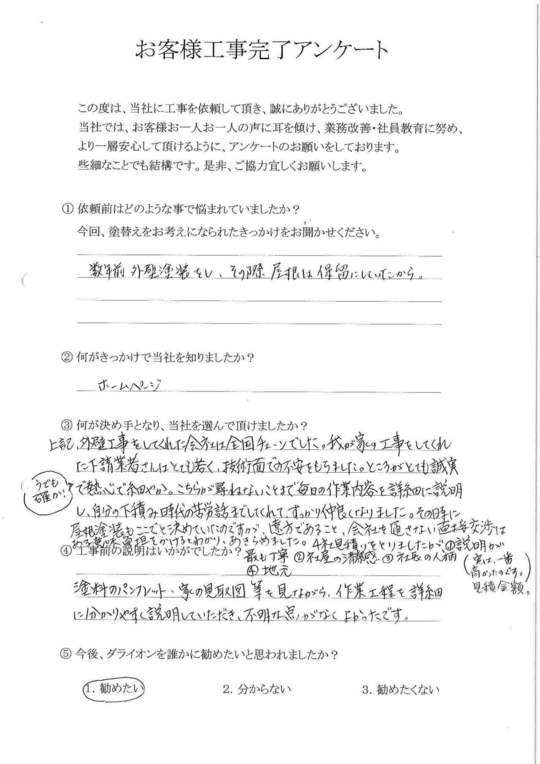 お客様工事完了アンケート
この度は、当社に工事を依頼して頂き、誠にありがとうございました。
当社では、お客様お一人お一人の声に耳を傾け、業務改善・社員教育に努め、
より一層安心して頂けるように、アンケートのお願いをしております。
些細なことでも結構です。是非、ご協力宜しくお願いします。
① 依頼前はどのような事で悩まれていましたか？
今回、塗替えをお考えになられたきっかけをお聞かせください。
数年前 外壁塗装をし、その際 屋根は保留にしていたから。
② 何がきっかけで当社を知りましたか？
ホームページ
③ 何が決め手となり、当社を選んで頂けましたか？
上記、外壁工事をしてくれた会社は全国チェーンでした。我が家の工事をしてくれ
た下請業者さんはとても若く、技術面での不安をもちました。ところがとても誠実
で熱心で細やか。こちらが尋ねないことまで毎日の作業内容を詳細に説明
うでも
確か！
し、自分の下積み時代の苦労話までしてくれて、すっかり仲良くなりました。その時に
屋根塗装もここでと決めていたのですが、遠方であること、会社を通さない直接交渉は
迷惑をかけるとわかり、あきらめました。4社見積りをとりましたが、①説明が
④ 工事前の説明はいかがでしたか？
最も丁寧 ②社屋の清潔感 ③社長の人柄
④地元
(実は、一番
高かったのです。
見積金額。)
塗料のパンフレット、家の見取図 等を見ながら、作業工程を詳細
に分かりやすく説明していただき、不明な点がなくよかったです。
⑤ 今後、ダライオンを誰かに勧めたいと思われましたか？
1. 勧めたい 2. 分からない 3. 勧めたくない